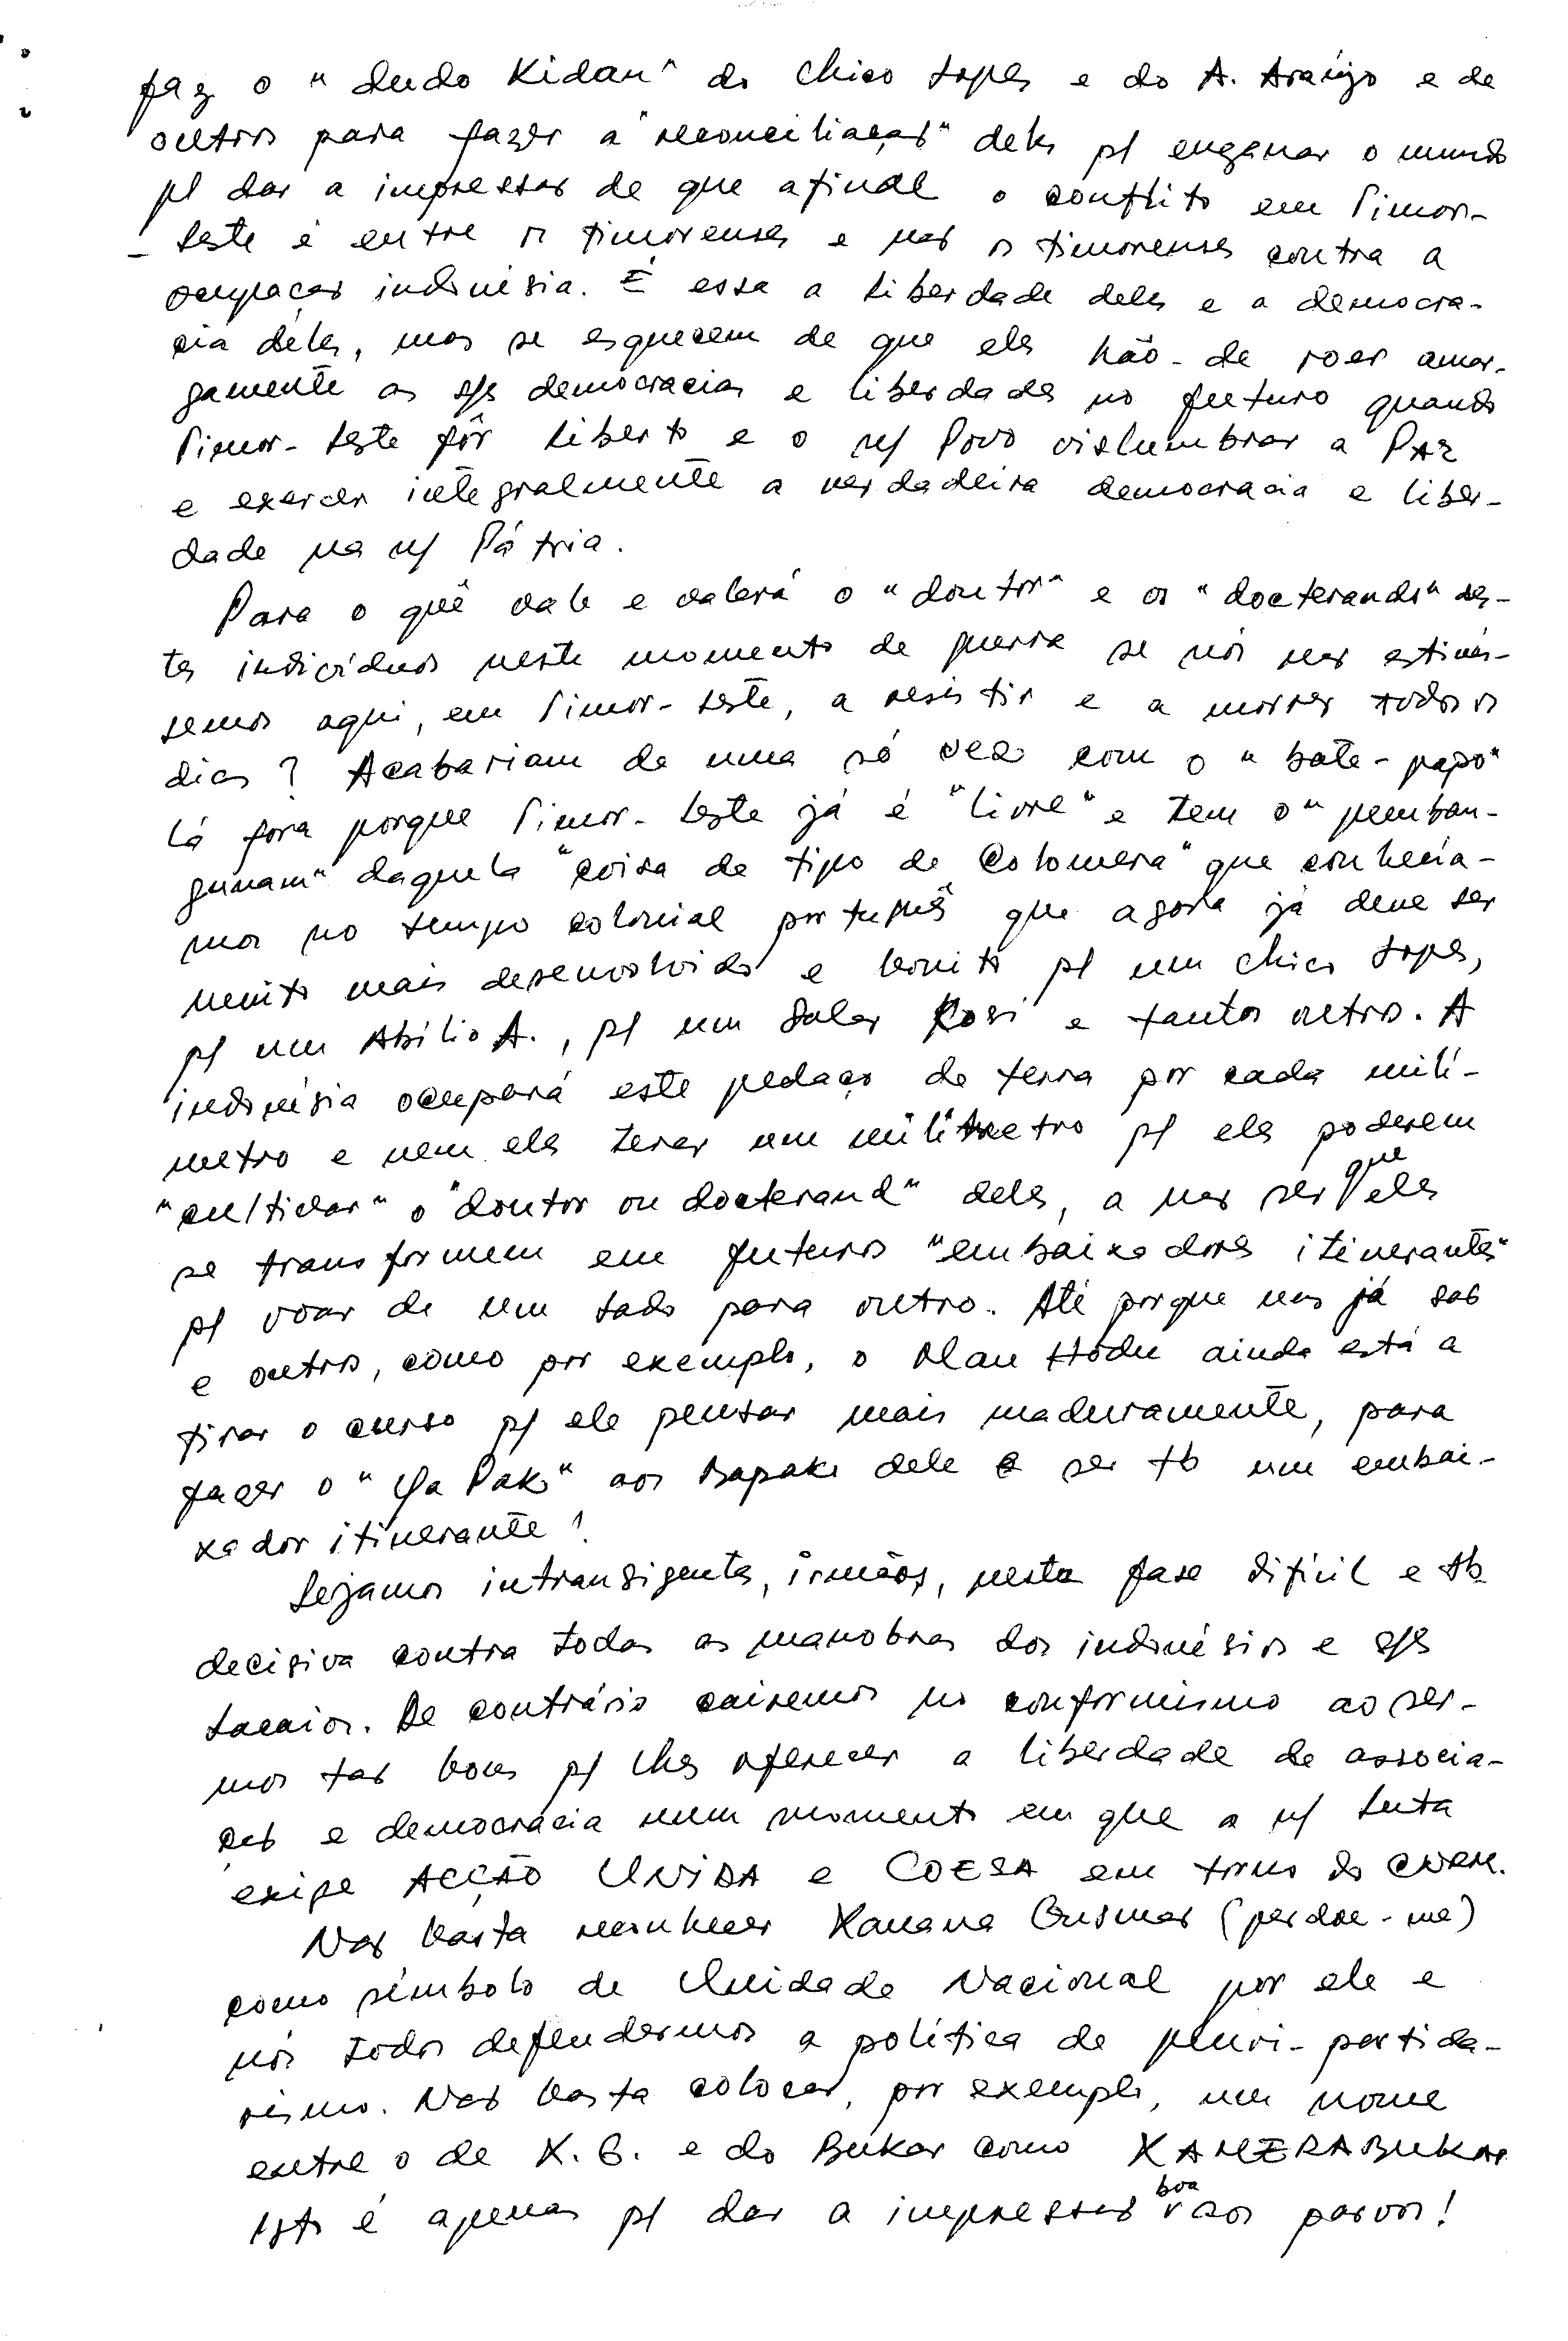 faz o "dudo Kidan" do Chico Lopes e do A. Araújo e de
outros para fazer a "reconciliação" deles p/ enganar o mundo
p/ dar a impressão de que afinal o conflito em Timor-
-Leste é entre os timorenses e não os timorenses contra a
ocupação indonésia. É essa a liberdade deles e a democra-
cia deles, mas se esquecem de que eles hão-de roer amar-
gamente as s/s democracias e liberdades no futuro quando
Timor-Leste fôr liberto e o n/ Povo vislumbrar a PAZ
e exercer integralmente a verdadeira democracia e liber-
dade na n/ Pátria.
Para o quê vale e valerá o "doutor" e os "docterandos" des-
tes indivíduos neste momento de guerra se nós não estivés-
semos aqui, em Timor-Leste, a resistir e a morrer todos os
dias? Acabariam de uma só vez com o "bate-papo"
lá fora porque Timor-Leste já é "livre" e tem o "pemban-
gunam" daquela "coisa de tipo de Colomera" que conhecía-
mos no tempo colonial português que agora já deve ser
muito mais desenvolvido e bonito p/ um Chico Lopes,
p/ um Abílio A., p/ um Salar Kosi e tantos outros. A
indonésia ocupará este pedaço de terra por cada milí-
metro e nem eles terão um milímetro p/ eles poderem
"cultivar" o "doutor ou docterand" deles, a não ser que eles
se transformem em futuros "embaixadores itinerantes"
p/ voar de um lado para outro. Até porque uns já são
e outros, como por exemplo, o Mau Hodu ainda está a
tirar o curso p/ ele pensar mais maduramente, para
fazer o "Ya Pak" aos Bapaks dele e ser tb um embai-
xador itinerante!
Sejamos intransigentes, irmãos, nesta fase difícil e tb
decisiva contra todas as manobras dos indonésios e s/s
lacaios. De contrário cairemos no conformismo ao ser-
mos tão bons p/ lhes oferecer a liberdade de associa-
ção e democracia num momento em que a n/ luta
exige ACÇÃO UNIDA e COESA em torno do CNRM.
Não basta reconhecer Xanana Gusmão (perdoe-me)
como símbolo de Unidade Nacional por ele e
nós todos defendermos a política de pluri-partida-
rismo. Não basta colocar, por exemplo, um nome
entre o de K. G. e do Bukar como KAMERABUKAR
Isto é apenas p/ dar a impressão boa aos parvos!